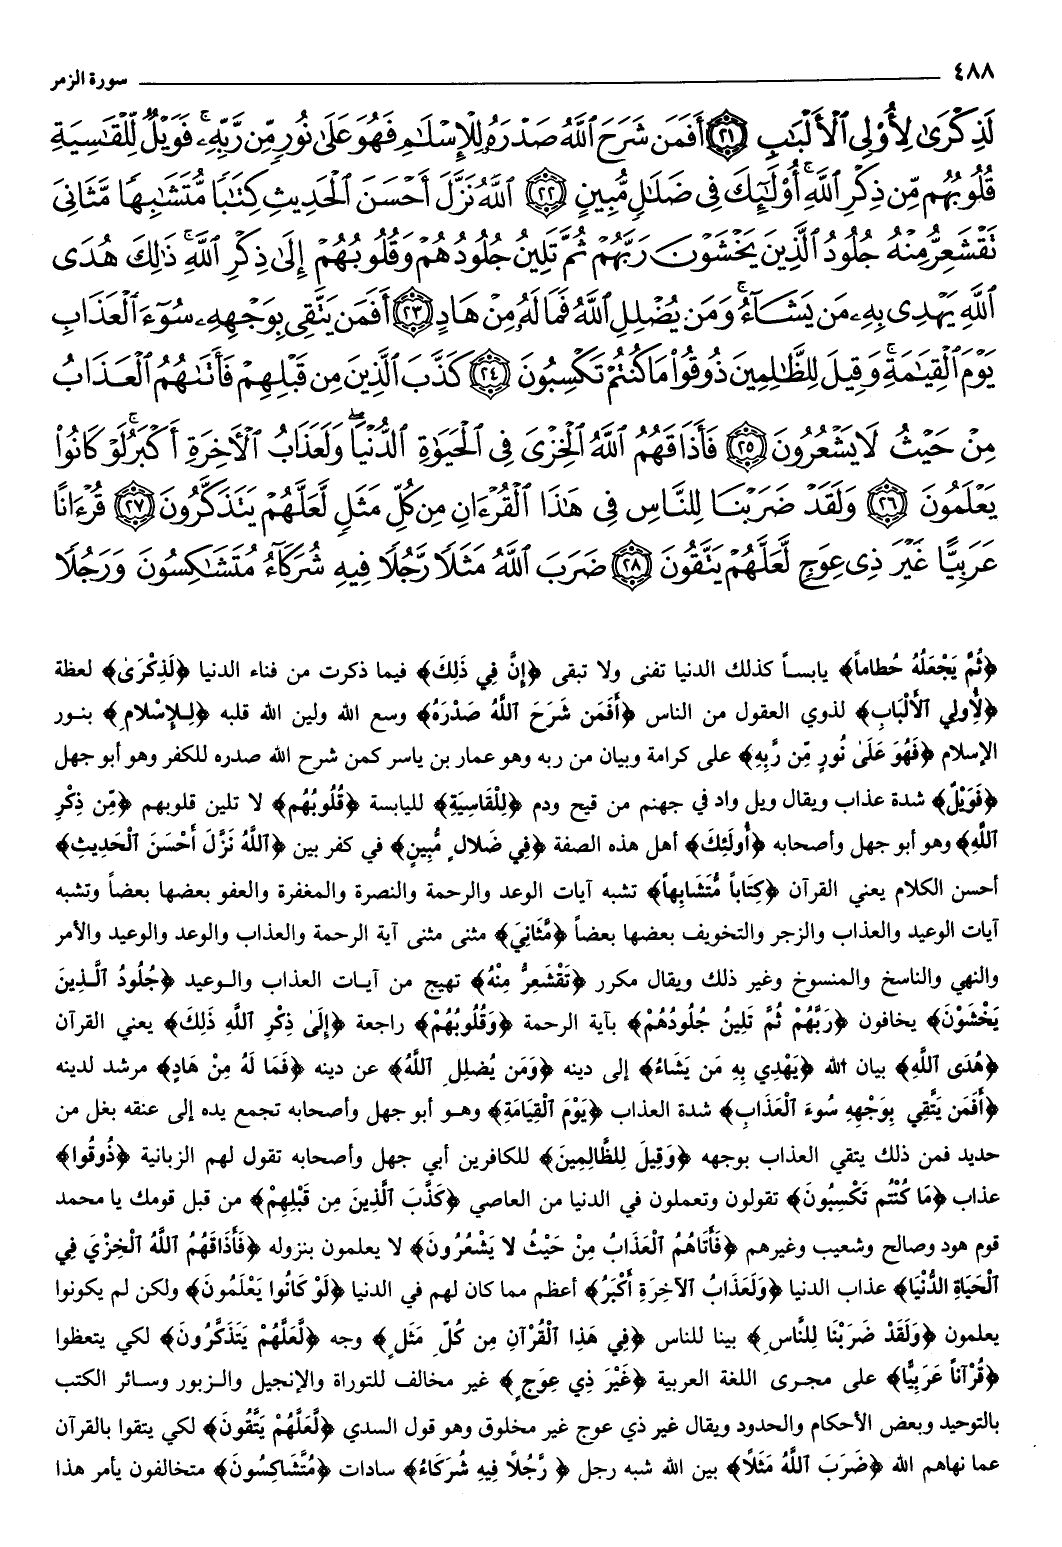 ٤٨٨ سورة الزمر
لَذِكْرَىٰ لِأُو۟لِى ٱلْأَلْبَـٰبِ ٢١ أَفَمَن شَرَحَ ٱللَّهُ صَدْرَهُۥ لِلْإِسْلَـٰمِ فَهُوَ عَلَىٰ نُورٍ مِّن رَّبِّهِۦ ۚ فَوَيْلٌ لِّلْقَـٰسِيَةِ
قُلُوبُهُم مِّن ذِكْرِ ٱللَّهِ ۚ أُو۟لَـٰٓئِكَ فِى ضَلَـٰلٍ مُّبِينٍ ٢٢ ٱللَّهُ نَزَّلَ أَحْسَنَ ٱلْحَدِيثِ كِتَـٰبًا مُّتَشَـٰبِهًا مَّثَانِىَ
تَقْشَعِرُّ مِنْهُ جُلُودُ ٱلَّذِينَ يَخْشَوْنَ رَبَّهُمْ ثُمَّ تَلِينُ جُلُودُهُمْ وَقُلُوبُهُمْ إِلَىٰ ذِكْرِ ٱللَّهِ ۚ ذَٰلِكَ هُدَى
ٱللَّهِ يَهْدِى بِهِۦ مَن يَشَآءُ ۚ وَمَن يُضْلِلِ ٱللَّهُ فَمَا لَهُۥ مِنْ هَادٍ ٢٣ أَفَمَن يَتَّقِى بِوَجْهِهِۦ سُوٓءَ ٱلْعَذَابِ
يَوْمَ ٱلْقِيَـٰمَةِ ۚ وَقِيلَ لِلظَّـٰلِمِينَ ذُوقُوا۟ مَا كُنتُمْ تَكْسِبُونَ ٢٤ كَذَّبَ ٱلَّذِينَ مِن قَبْلِهِمْ فَأَتَىٰهُمُ ٱلْعَذَابُ
مِنْ حَيْثُ لَا يَشْعُرُونَ ٢٥ فَأَذَاقَهُمُ ٱللَّهُ ٱلْخِزْىَ فِى ٱلْحَيَوٰةِ ٱلدُّنْيَا ۖ وَلَعَذَابُ ٱلْأَخِرَةِ أَكْبَرُ ۚ لَوْ كَانُوا۟
يَعْلَمُونَ ٢٦ وَلَقَدْ ضَرَبْنَا لِلنَّاسِ فِى هَـٰذَا ٱلْقُرْءَانِ مِن كُلِّ مَثَلٍ لَّعَلَّهُمْ يَتَذَكَّرُونَ ٢٧ قُرْءَانًا
عَرَبِيًّا غَيْرَ ذِى عِوَجٍ لَّعَلَّهُمْ يَتَّقُونَ ٢٨ ضَرَبَ ٱللَّهُ مَثَلًا رَّجُلًا فِيهِ شُرَكَآءُ مُتَشَـٰكِسُونَ وَرَجُلًا
﴿ثُمَّ يَجْعَلُهُ حُطاماً﴾ يابساً كذلك الدنيا تفنى ولا تبقى ﴿إِنَّ فِي ذَلِكَ﴾ فيما ذكرت من فناء الدنيا ﴿لَذِكْرَىٰ﴾ لعظة
﴿لِأُولِي ٱلْأَلْبَابِ﴾ لذوي العقول من الناس ﴿أَفَمَن شَرَحَ ٱللَّهُ صَدْرَهُ﴾ وسع الله ولين الله قلبه ﴿لِلإِسْلامِ﴾ بنور
الإسلام ﴿فَهُوَ عَلَىٰ نُورٍ مِّن رَّبِّهِ﴾ على كرامة وبيان من ربه وهو عمار بن ياسر كمن شرح الله صدره للكفر وهو أبو جهل
﴿فَوَيْلٌ﴾ شدة عذاب ويقال ويل واد في جهنم من قيح ودم ﴿لِلْقَاسِيَةِ﴾ لليابسة ﴿قُلُوبُهُم﴾ لا تلين قلوبهم ﴿مِّن ذِكْرِ
ٱللَّهِ﴾ وهو أبو جهل وأصحابه ﴿أُولَئِكَ﴾ أهل هذه الصفة ﴿فِي ضَلالٍ مُّبِينٍ﴾ في كفر بين ﴿ٱللَّهُ نَزَّلَ أَحْسَنَ ٱلْحَدِيثِ﴾
أحسن الكلام يعني القرآن ﴿كِتَاباً مُّتَشَابِهاً﴾ تشبه آيات الوعد والرحمة والنصرة والمغفرة والعفو بعضها بعضاً وتشبه
آيات الوعيد والعذاب والزجر والتخويف بعضها بعضاً ﴿مَّثَانِيَ﴾ مثنى مثنى آية الرحمة والعذاب والوعد والوعيد والأمر
والنهي والناسخ والمنسوخ وغير ذلك ويقال مكرر ﴿تَقْشَعِرُّ مِنْهُ﴾ تهيج من آيات العذاب والوعيد ﴿جُلُودُ ٱلَّذِينَ
يَخْشَوْنَ﴾ يخافون ﴿رَبَّهُمْ ثُمَّ تَلِينُ جُلُودُهُمْ﴾ بآية الرحمة ﴿وَقُلُوبُهُمْ﴾ راجعة ﴿إِلَىٰ ذِكْرِ ٱللَّهِ ذَلِكَ﴾ يعني القرآن
﴿هُدَى ٱللَّهِ﴾ بيان الله ﴿يَهْدِي بِهِ مَن يَشَاءُ﴾ إلى دينه ﴿وَمَن يُضلِلِ ٱللَّهُ﴾ عن دينه ﴿فَمَا لَهُ مِنْ هَادٍ﴾ مرشد لدينه
﴿أَفَمَن يَتَّقِي بِوَجْهِهِ سُوءَ ٱلْعَذَابِ﴾ شدة العذاب ﴿يَوْمَ الْقِيَامَةِ﴾ وهو أبو جهل وأصحابه تجمع يده إلى عنقه بغل من
حديد فمن ذلك يتقي العذاب بوجهه ﴿وَقِيلَ لِلظَّالِمِينَ﴾ للكافرين أبي جهل وأصحابه تقول لهم الزبانية ﴿ذُوقُوا﴾
عذاب ﴿مَا كُنْتُم تَكْسِبُونَ﴾ تقولون وتعملون في الدنيا من العاصي ﴿كَذَّبَ الَّذِينَ مِن قَبْلِهِمْ﴾ من قبل قومك يا محمد
قوم هود وصالح وشعيب وغيرهم ﴿فَأَتَاهُمُ ٱلْعَذَابُ مِنْ حَيْثُ لا يَشْعُرُونَ﴾ لا يعلمون بنزوله ﴿فَأَذَاقَهُمُ ٱللَّهُ ٱلْخِزْيَ فِي
ٱلْحَيَاةِ ٱلدُّنْيَا﴾ عذاب الدنيا ﴿وَلَعَذَابُ ٱلآخِرَةِ أَكْبَرُ﴾ أعظم مما كان لهم في الدنيا ﴿لَوْ كَانُوا يَعْلَمُونَ﴾ ولكن لم يكونوا
يعلمون ﴿وَلَقَدْ ضَرَبْنَا لِلنَّاسِ﴾ بينا للناس ﴿فِي هَذَا ٱلْقُرْآنِ مِن كُلِّ مَثَلٍ﴾ وجه ﴿لَّعَلَّهُمْ يَتَذَكَّرُونَ﴾ لكي يتعظوا
﴿قُرْآناً عَرَبِيًّا﴾ على مجرى اللغة العربية ﴿غَيْرَ ذِي عِوَجٍ﴾ غير مخالف للتوراة والإنجيل والزبور وسائر الكتب
بالتوحيد وبعض الأحكام والحدود ويقال غير ذي عوج غير مخلوق وهو قول السدي ﴿لَّعَلَّهُمْ يَتَّقُونَ﴾ لكي يتقوا بالقرآن
عما نهاهم الله ﴿ضَرَبَ ٱللَّهُ مَثَلًا﴾ بين الله شبه رجل ﴿رَّجُلاً فِيهِ شُرَكَاءُ﴾ سادات ﴿مُتَّشَاكِسُونَ﴾ متخالفون يأمر هذا